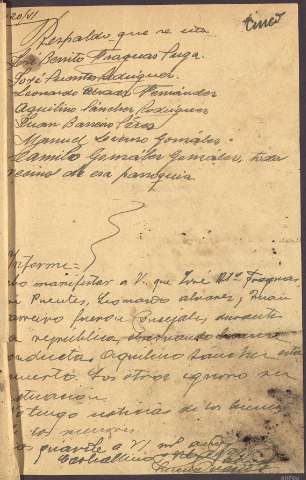 20/VI
Respaldo, que se cita
José Benito Fraguas Puga.
José Puentes Rodriguez.
Leonardo Alvarez Fernández
Aquilino Sánchez Rodriguez
Juan Barreiro Pérez
Manuel Lorenzo González
Camilo González González, todos
vecinos de esa parroquia
Informe =
manifestar a V. que José Bto Fraguas,
Puentes, Leonardo alvarez, Juan
fueron Concejales, durante
a republica,
conducta. Aquilino Sanchez esta
muerto. Los otros ignoro su
situacion
tengo noticia de los bienes
guarde a V. mil años
Carballino